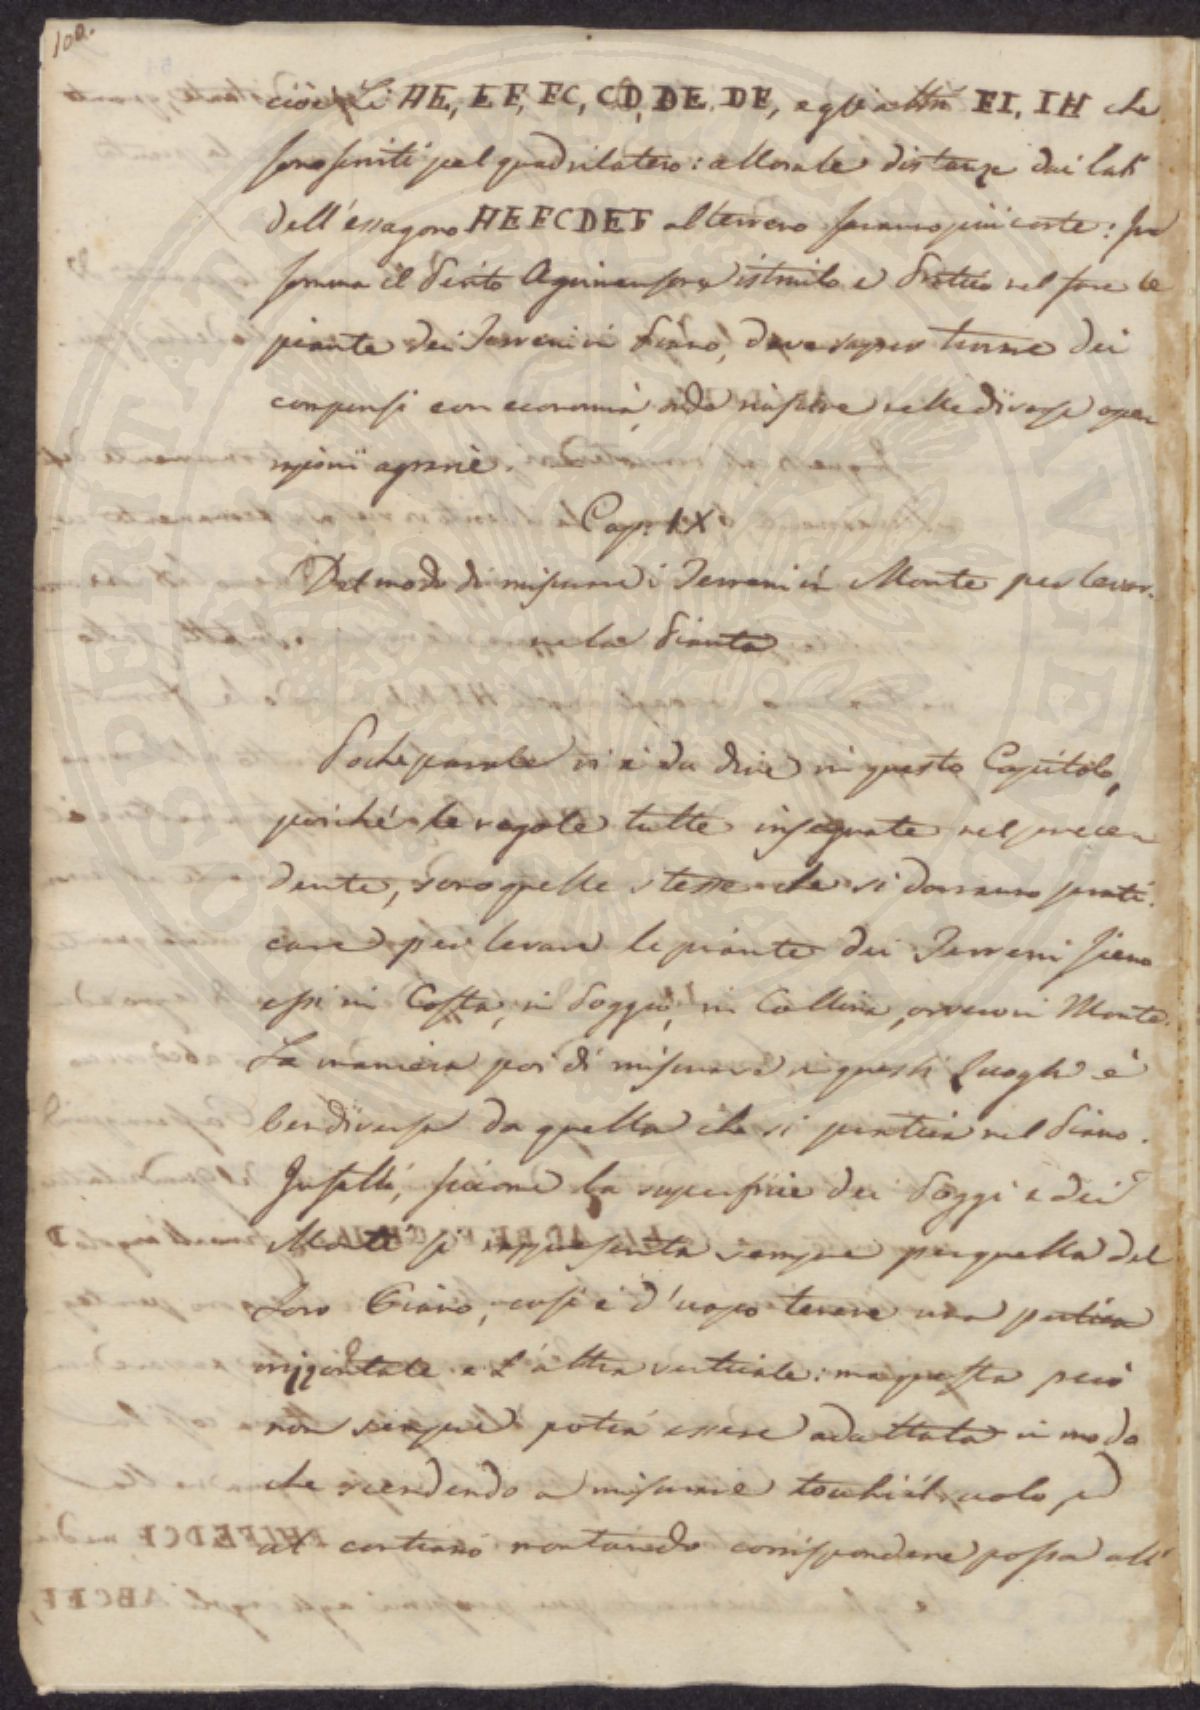 100.
cioè li AE, EF, FC, CD, DE, DF, e gli altri FI, IH che
sono serviti pel quadrilatero: allora le distanze dai lati
dell'essagono AEFCDEF al terreno saranno più corte: In
somma il Perito Agrimensore istruito e pratico nel fare le
piante dei Terreni in piano, deve saper trovare dei
compensi con economia, onde riuscire nelle diverse ope-
razioni agrarie.
Cap. IX
Del modo di misurare i Terreni in Monte per levar-
ne la Pianta
Poche parole vi è da dire in questo Capitolo,
poiché le regole tutte insegnate nel prece-
dente, sono quelle stesse che si dovranno prati-
care per levare le piante dei Terreni sieno
essi in Costa, in Poggio, in Collina, ovvero in Monte.
La maniera poi di misurare in questi luoghi è
ben diversa da quella che si pratica nel Piano.
Infatti, siccome la superficie dei Poggi e dei
Monti si rappresenta sempre per quella del
Loro Piano, così è d'uopo tenere una pertica
orizzontale e l'altra verticale: ma questa però
non sempre potrà essere adattata in modo
che scendendo a misurare tocchi il suolo, e
al contrario montando corrispondere possa all'